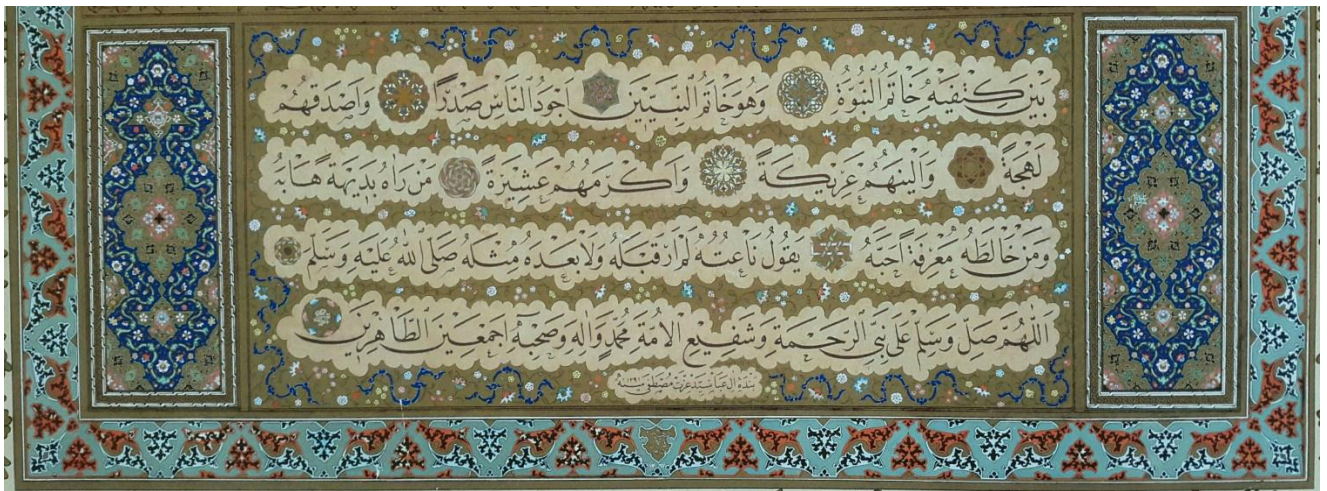 بين كتفيه خاتم النبوة وهو خاتم النبيين اجود الناس صدرا واصدقهم
لهجة والينهم عريكة واكرمهم عشيرة من راه بديهة هابه
ومن خالطه معرفة احبه يقول ناعته لم ار قبله ولا بعده مثله صلى الله عليه وسلم
اللهم صل وسلم على نبي الرحمة وشفيع الامة محمد واله وصحبه اجمعين الطاهرين
بنده ال عبا سيد عزت مصطفى